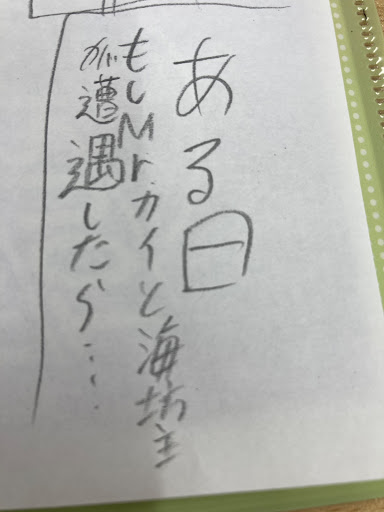 ある日
もしMrカイと海坊主
が遭遇したら…